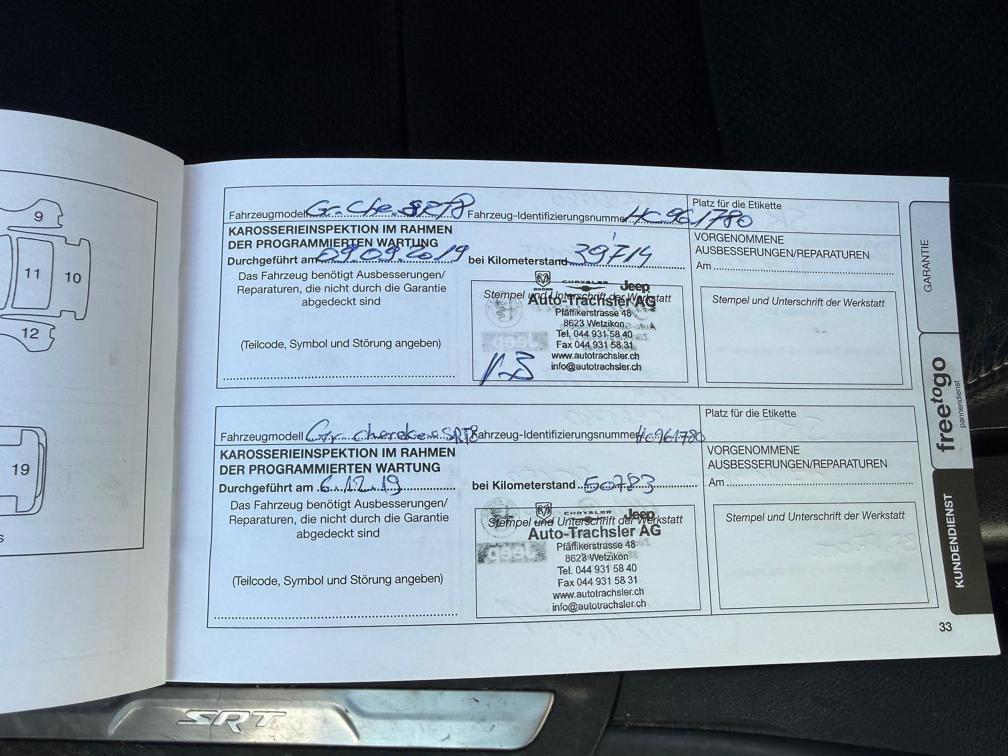 9
11
10
12
19
s
Fahrzeugmodell Gr. Che. SRT8 Fahrzeug-Identifizierungsnummer HC961780
Platz für die Etikette
KAROSSERIEINSPEKTION IM RAHMEN
DER PROGRAMMIERTEN WARTUNG
Durchgeführt am 09.09.2019 bei Kilometerstand 39'714
Das Fahrzeug benötigt Ausbesserungen/
Reparaturen, die nicht durch die Garantie
abgedeckt sind
(Teilcode, Symbol und Störung angeben)
DODGE CHRYSLER Jeep
Stempel und Unterschrift der Werkstatt
Auto-Trachsler AG
Pfäffikerstrasse 48
8623 Wetzikon
Tel. 044 931 58 40
Fax 044 931 58 31
www.autotrachsler.ch
info@autotrachsler.ch
VORGENOMMENE
AUSBESSERUNGEN/REPARATUREN
Am
Stempel und Unterschrift der Werkstatt
Fahrzeugmodell Gr. cherokee SRT8 Fahrzeug-Identifizierungsnummer HC961780
Platz für die Etikette
KAROSSERIEINSPEKTION IM RAHMEN
DER PROGRAMMIERTEN WARTUNG
Durchgeführt am 6.12.19 bei Kilometerstand 50783
Das Fahrzeug benötigt Ausbesserungen/
Reparaturen, die nicht durch die Garantie
abgedeckt sind
(Teilcode, Symbol und Störung angeben)
CHRYSLER Jeep
Stempel und Unterschrift der Werkstatt
Auto-Trachsler AG
Pfäffikerstrasse 48
8623 Wetzikon
Tel. 044 931 58 40
Fax 044 931 58 31
www.autotrachsler.ch
info@autotrachsler.ch
VORGENOMMENE
AUSBESSERUNGEN/REPARATUREN
Am
Stempel und Unterschrift der Werkstatt
GARANTIE
freetogo
pannendienst
KUNDENDIENST
33
SRT